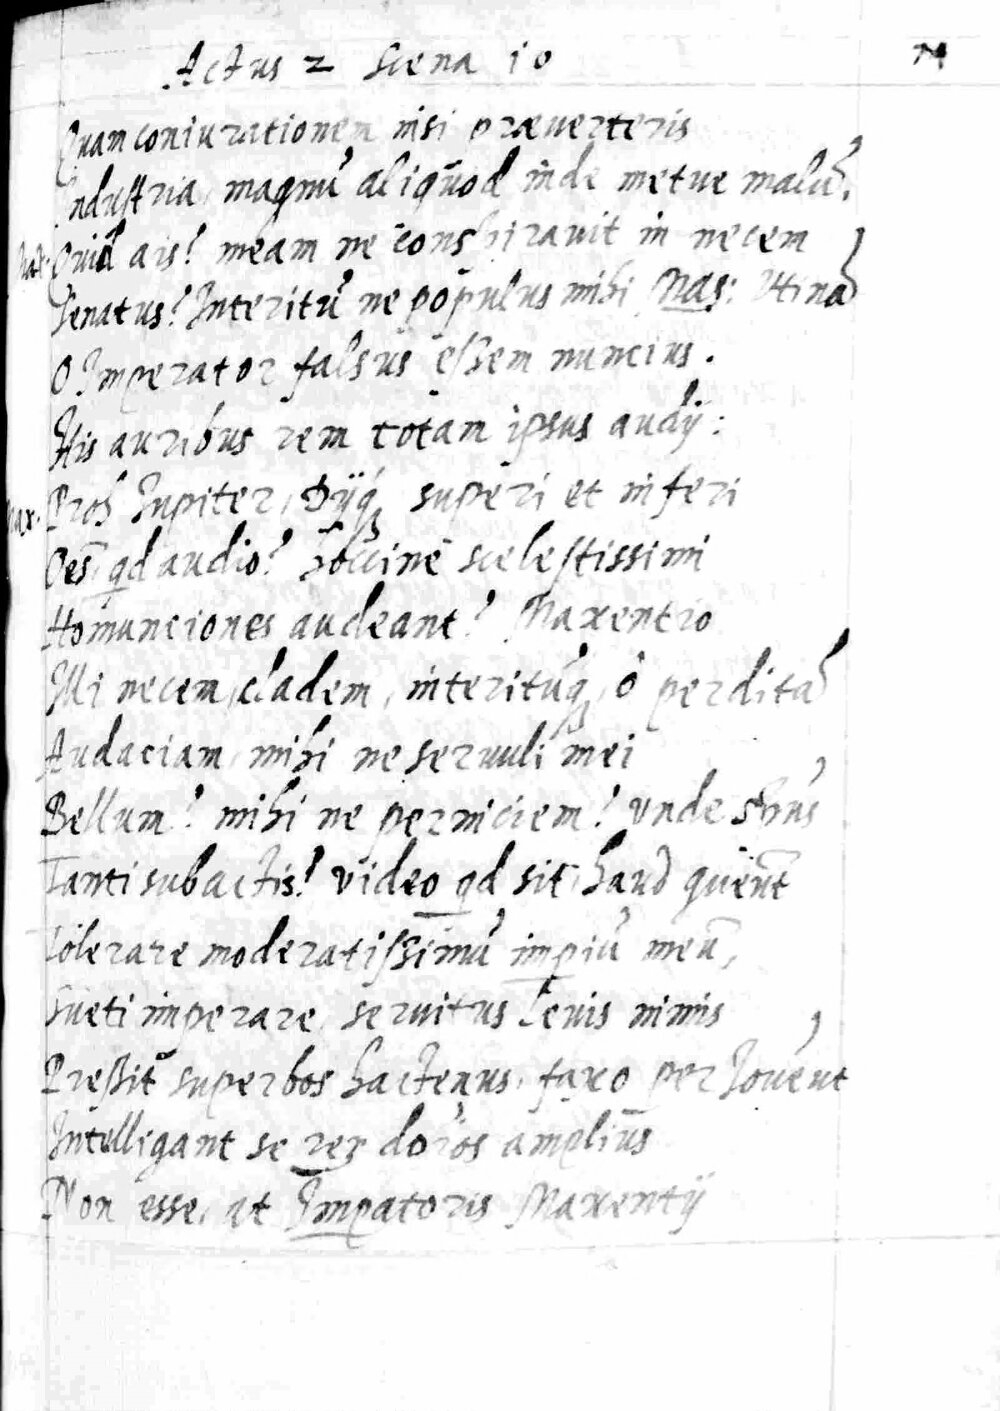 Actus 2 Scena 10
Quam coniurationem nisi præuerteris
Industria, magnũ aliquod inde metue malũ.
Max. Quid ais? meam ne conspirauit in necem
Senatus? Interitũ ne populus mihi Nas: Utinã
O Imperator falsus essem nuncius.
His auribus rem totam ipsus audij:
Max. Proh Iupiter, Dijq; superi et inferi
Oẽs, qd audio? hoccine scelestissimi
Homunciones audeant? Maxentio
Mi necem, cladem, interitũq; ô perditã
Audaciam, mihi ne seruuli mei
Bellum? mihi ne perniciem? Vnde
Tanti subactis? video qd sit, haud queũt
Tolerare moderatissimũ impiũ meũ,
Sueti imperare, seruitus leuis nimis
Pressit superbos hactenus, faxo per Iouẽ ut
Intelligant se rerũ dõros amplius
Non esse, at Impatoris Maxentij